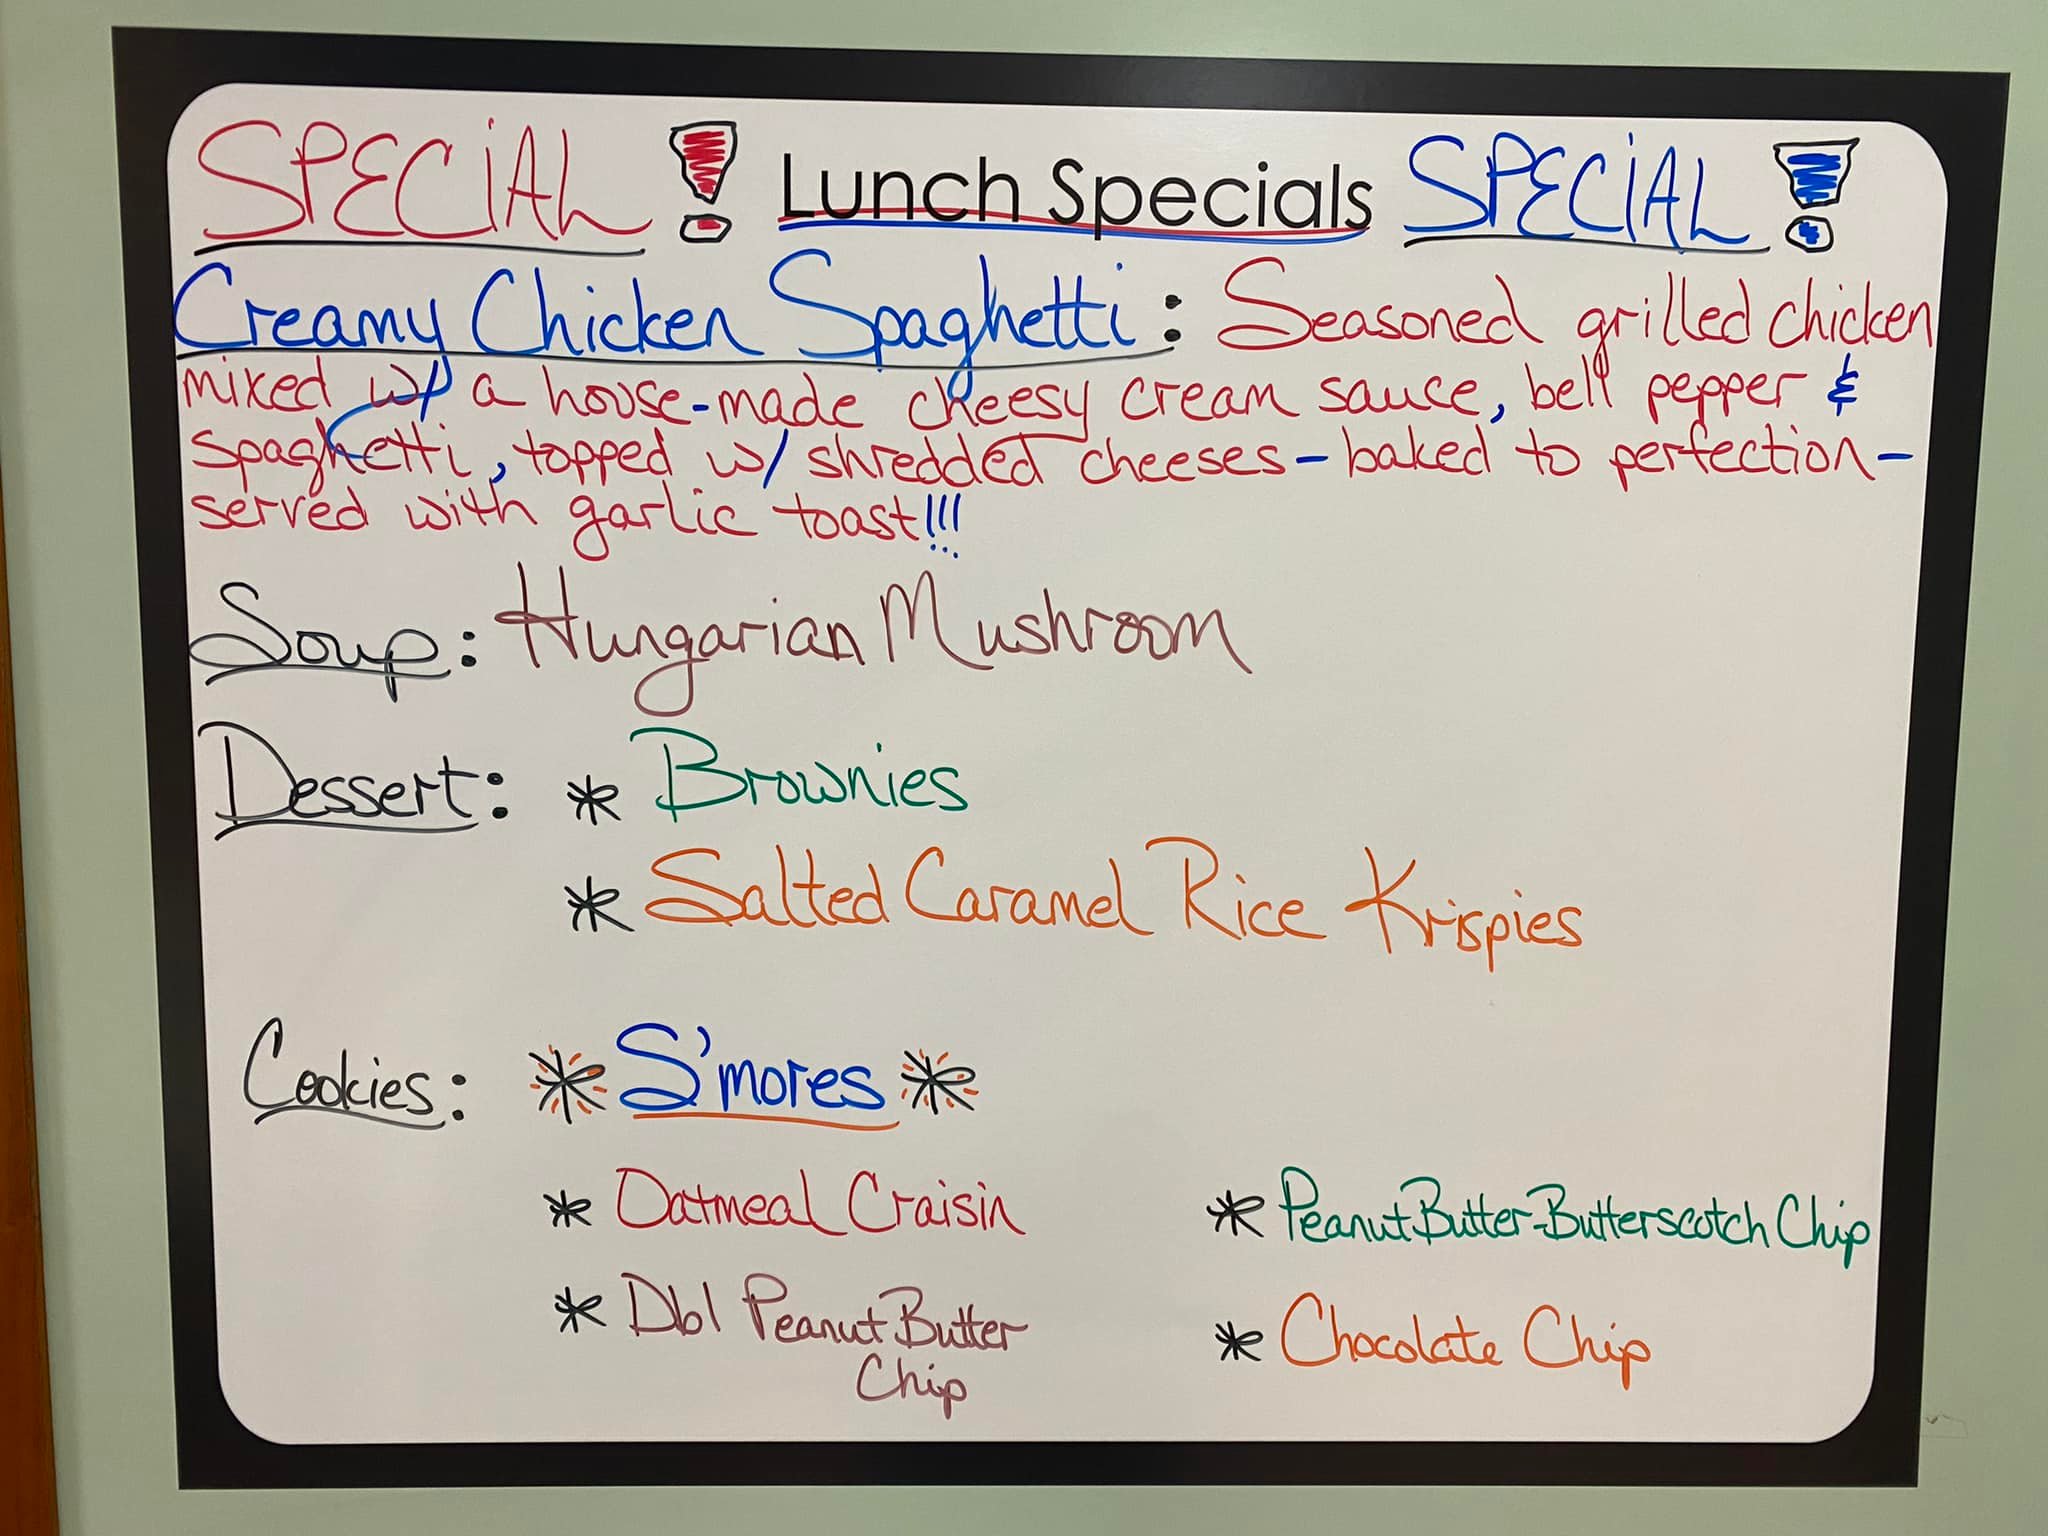 SPECIAL ! Lunch Specials SPECIAL !
Creamy Chicken Spaghetti: Seasoned grilled chicken
mixed w/ a house-made cheesy cream sauce, bell pepper &
spaghetti, topped w/ shredded cheeses - baked to perfection -
served with garlic toast!!!
Soup: Hungarian Mushroom
Dessert: * Brownies
* Salted Caramel Rice Krispies
Cookies: * S'mores *
* Oatmeal Craisin * Peanut Butter-Butterscotch Chip
* Dbl Peanut Butter * Chocolate Chip
Chip